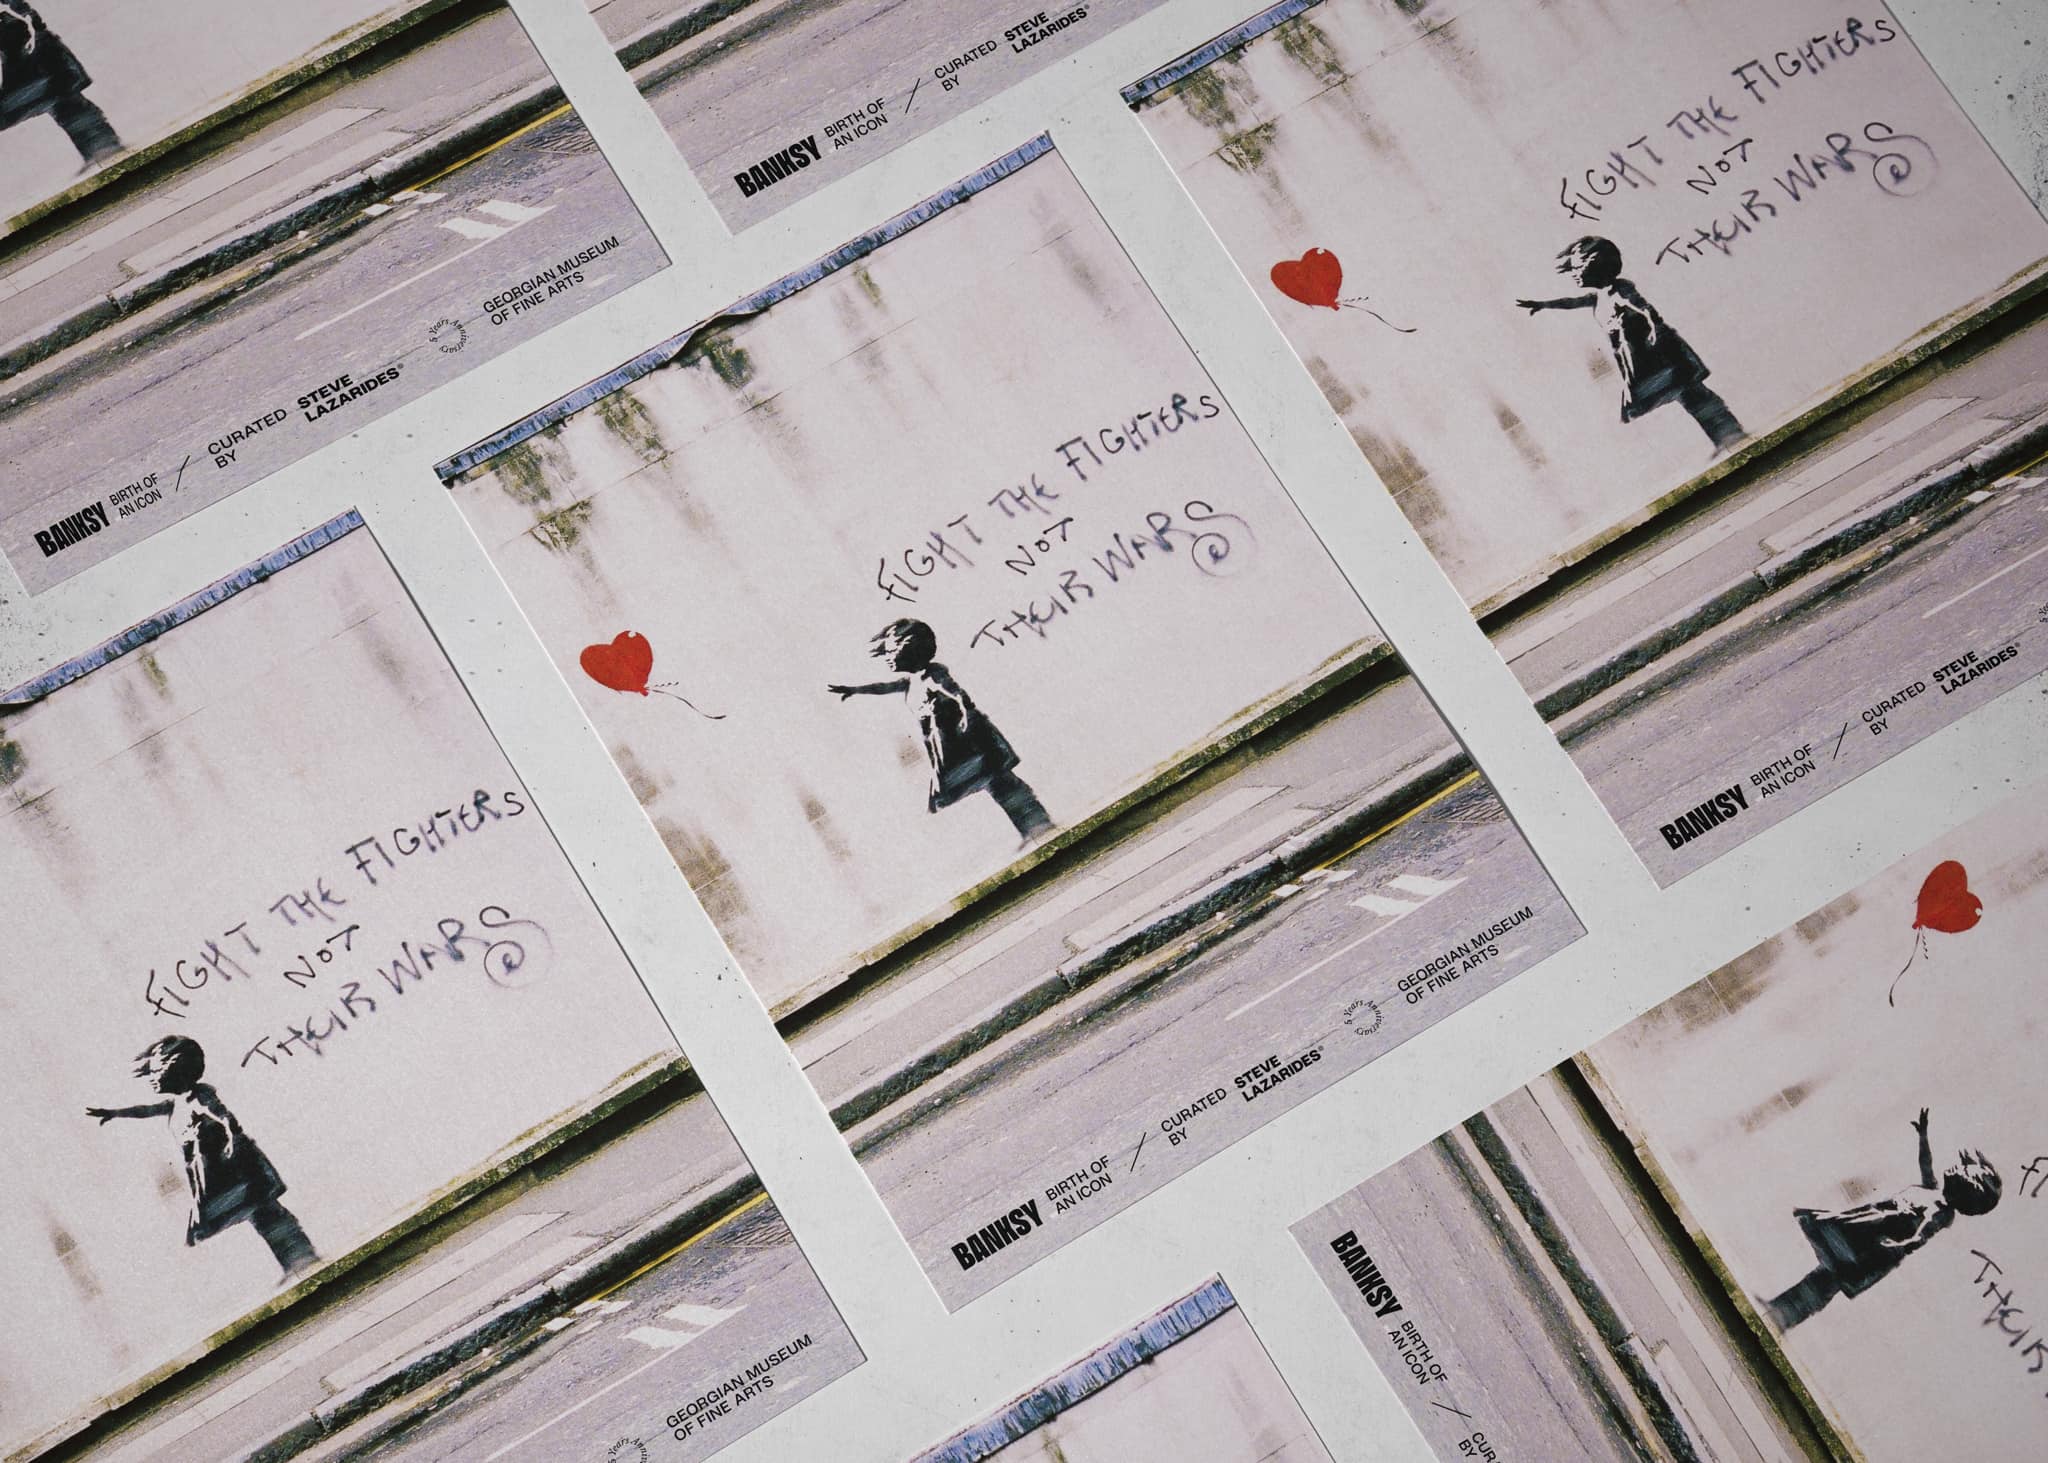 BANKSY
BIRTH OF
AN ICON
/
CURATED
BY
STEVE
LAZARIDES®
5 Years Anniversary
GEORGIAN MUSEUM
OF FINE ARTS
BANKSY
BIRTH OF
AN ICON
/
CURATED
BY
STEVE
LAZARIDES®
FIGHT THE FIGHTERS
NOT
THEIR WARS
BANKSY
BIRTH OF
AN ICON
/
CURATED
BY
STEVE
LAZARIDES®
FIGHT THE FIGHTERS
NOT
THEIR WARS
BANKSY
BIRTH OF
AN ICON
/
CURATED
BY
STEVE
LAZARIDES®
5 Years Anniversary
GEORGIAN MUSEUM
OF FINE ARTS
FIGHT THE FIGHTERS
NOT
THEIR WARS
5 Years
GEORGIAN MUSEUM
OF FINE ARTS
THEIR
BANKSY
BIRTH OF
AN ICON
/
BY